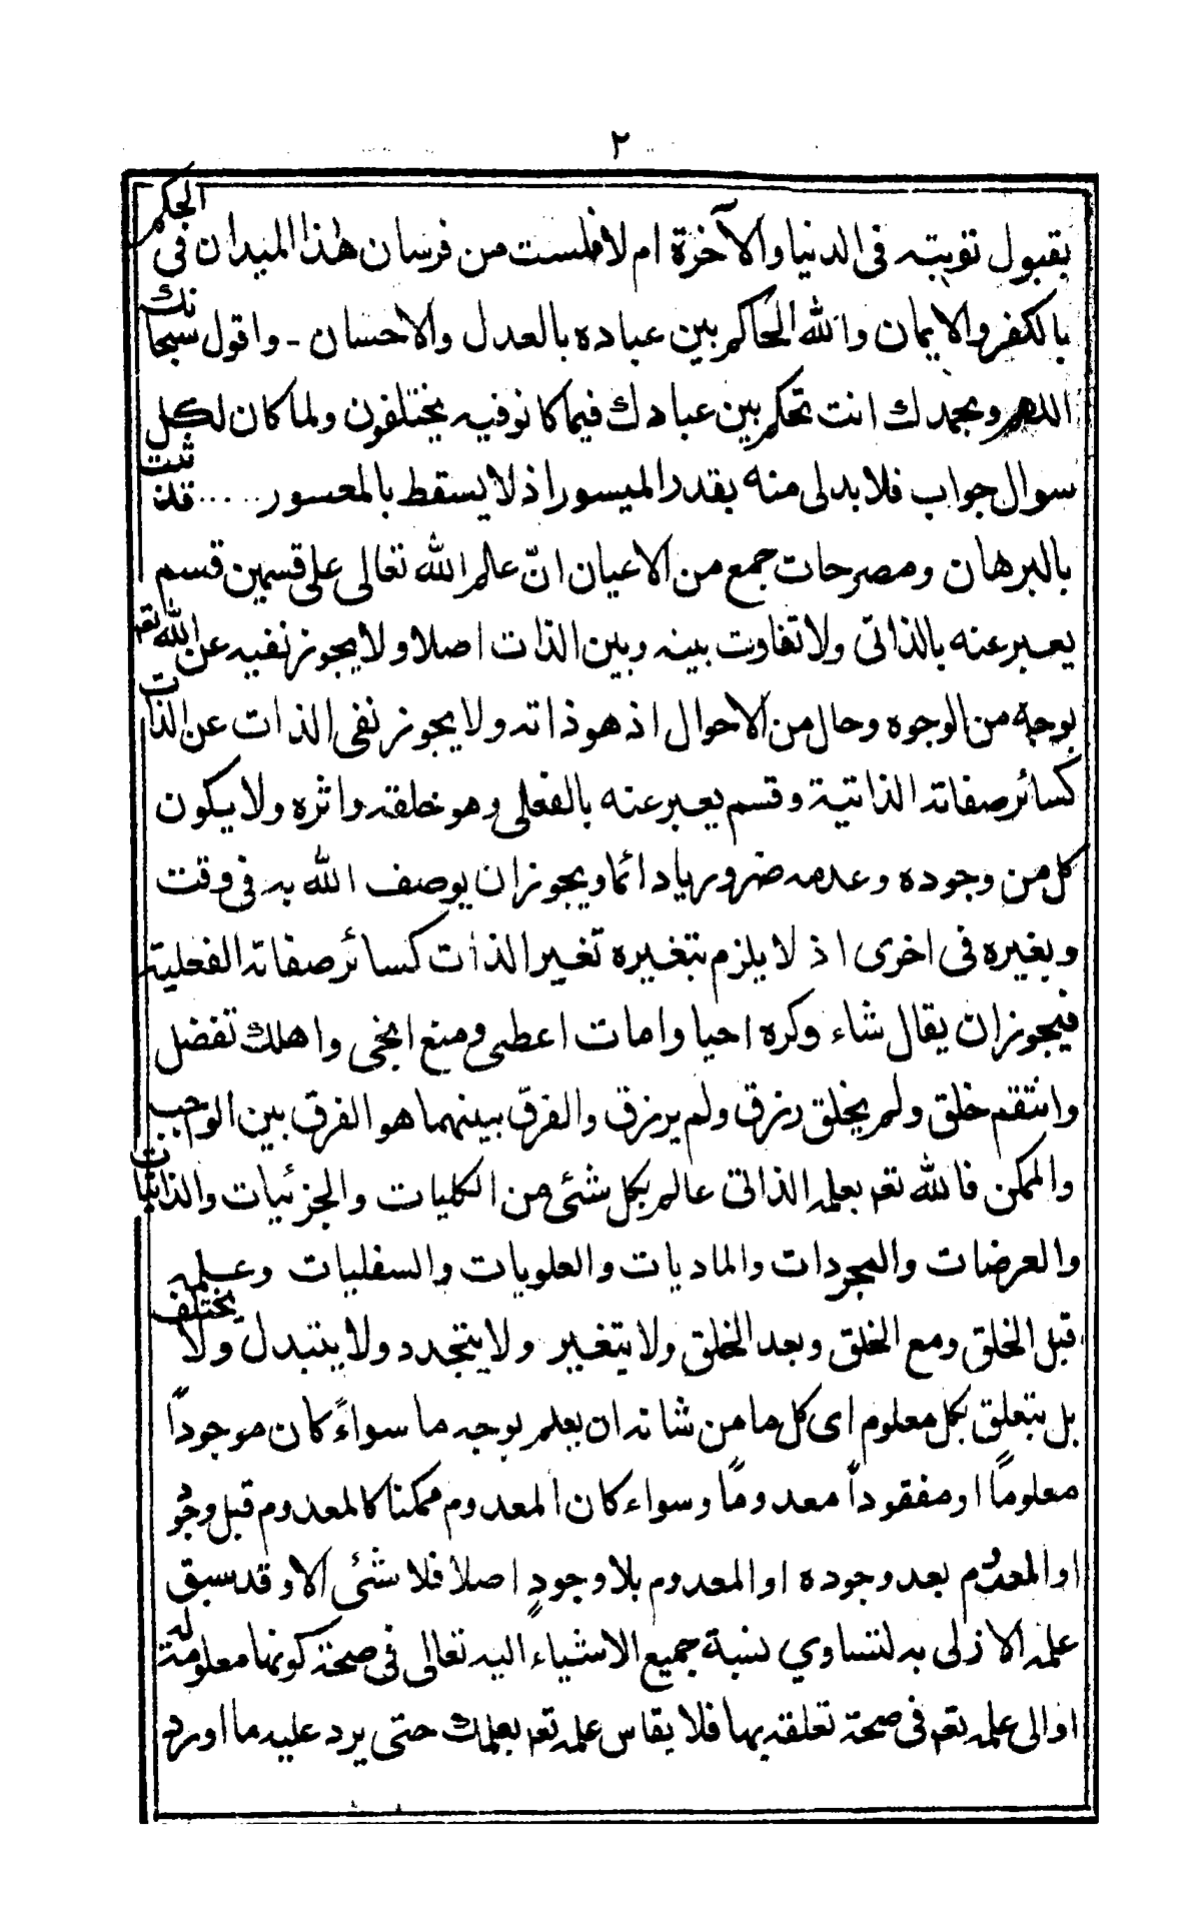 ٢
بقبول توبته فى الدنيا والآخرة ام لا فلست من فرسان هذا الميدان فى الحكم
بالكفر والايمان والله الحاكم بين عباده بالعدل والاحسان - واقول سبحانك
اللهم وبحمدك انت تحكم بين عبادك فيما كانوفيه يختلفون ولما كان لكل
سوال جواب فلابد لى منه بقدر الميسور اذ لا يسقط بالمعسور ..... قد ثبت
بالبرهان ومصرحات جمع من الاعيان انّ علم الله تعالى على قسمين قسم
يعبر عنه بالذاتى ولا تفاوت بينه وبين الذات اصلا ولا يجوز نفيه عن الله تعم
بوجه من الوجوه وحال من الاحوال اذ هو ذاته ولا يجوز نفى الذات عن الذات
كسائر صفاته الذاتية وقسم يعبر عنه بالفعلى وهو خلقته واثره ولا يكون
كل من وجوده وعدمه ضروريا دائما ويجوز ان يوصف الله به فى وقت
وبغيره فى اخرى اذ لا يلزم بتغيره تغير الذات كسائر صفاته الفعلية
فيجوز ان يقال شاء وكره احيا وامات اعطى ومنع انجى واهلك تفضل
وانتقم خلق ولم يخلق رزق ولم يرزق والفرق بينهما هو الفرق بين الواجب
والممكن فالله تعم بعلمه الذاتى عالم بكل شئى من الكليات والجزئيات والذاتيات
والعرضات والمجردات والماديات والعلويات والسفليات وعلمه
قبل الخلق ومع الخلق وبعد الخلق ولا يتغير ولا يتجدد ولا يتبدل ولا يختلف
بل يتعلق بكل معلوم اى كل ما من شانه ان يعلم بوجه ما سواءً كان موجوداً
معلوماً او مفقوداً معدوماً وسواء كان المعدوم ممكنا كالمعدوم قبل وجوده
او المعدوم بعد وجوده او المعدوم بلا وجودٍ اصلا فلا شئى الا وقد سبق
علمه الازلى به لتساوي نسبة جميع الاشياء اليه تعالى فى صحة كونها معلومة له
او الى علمه تعم فى صحة تعلقه بها فلا يقاس علمه تعم بعلمك حتى يرد عليه ما اورد